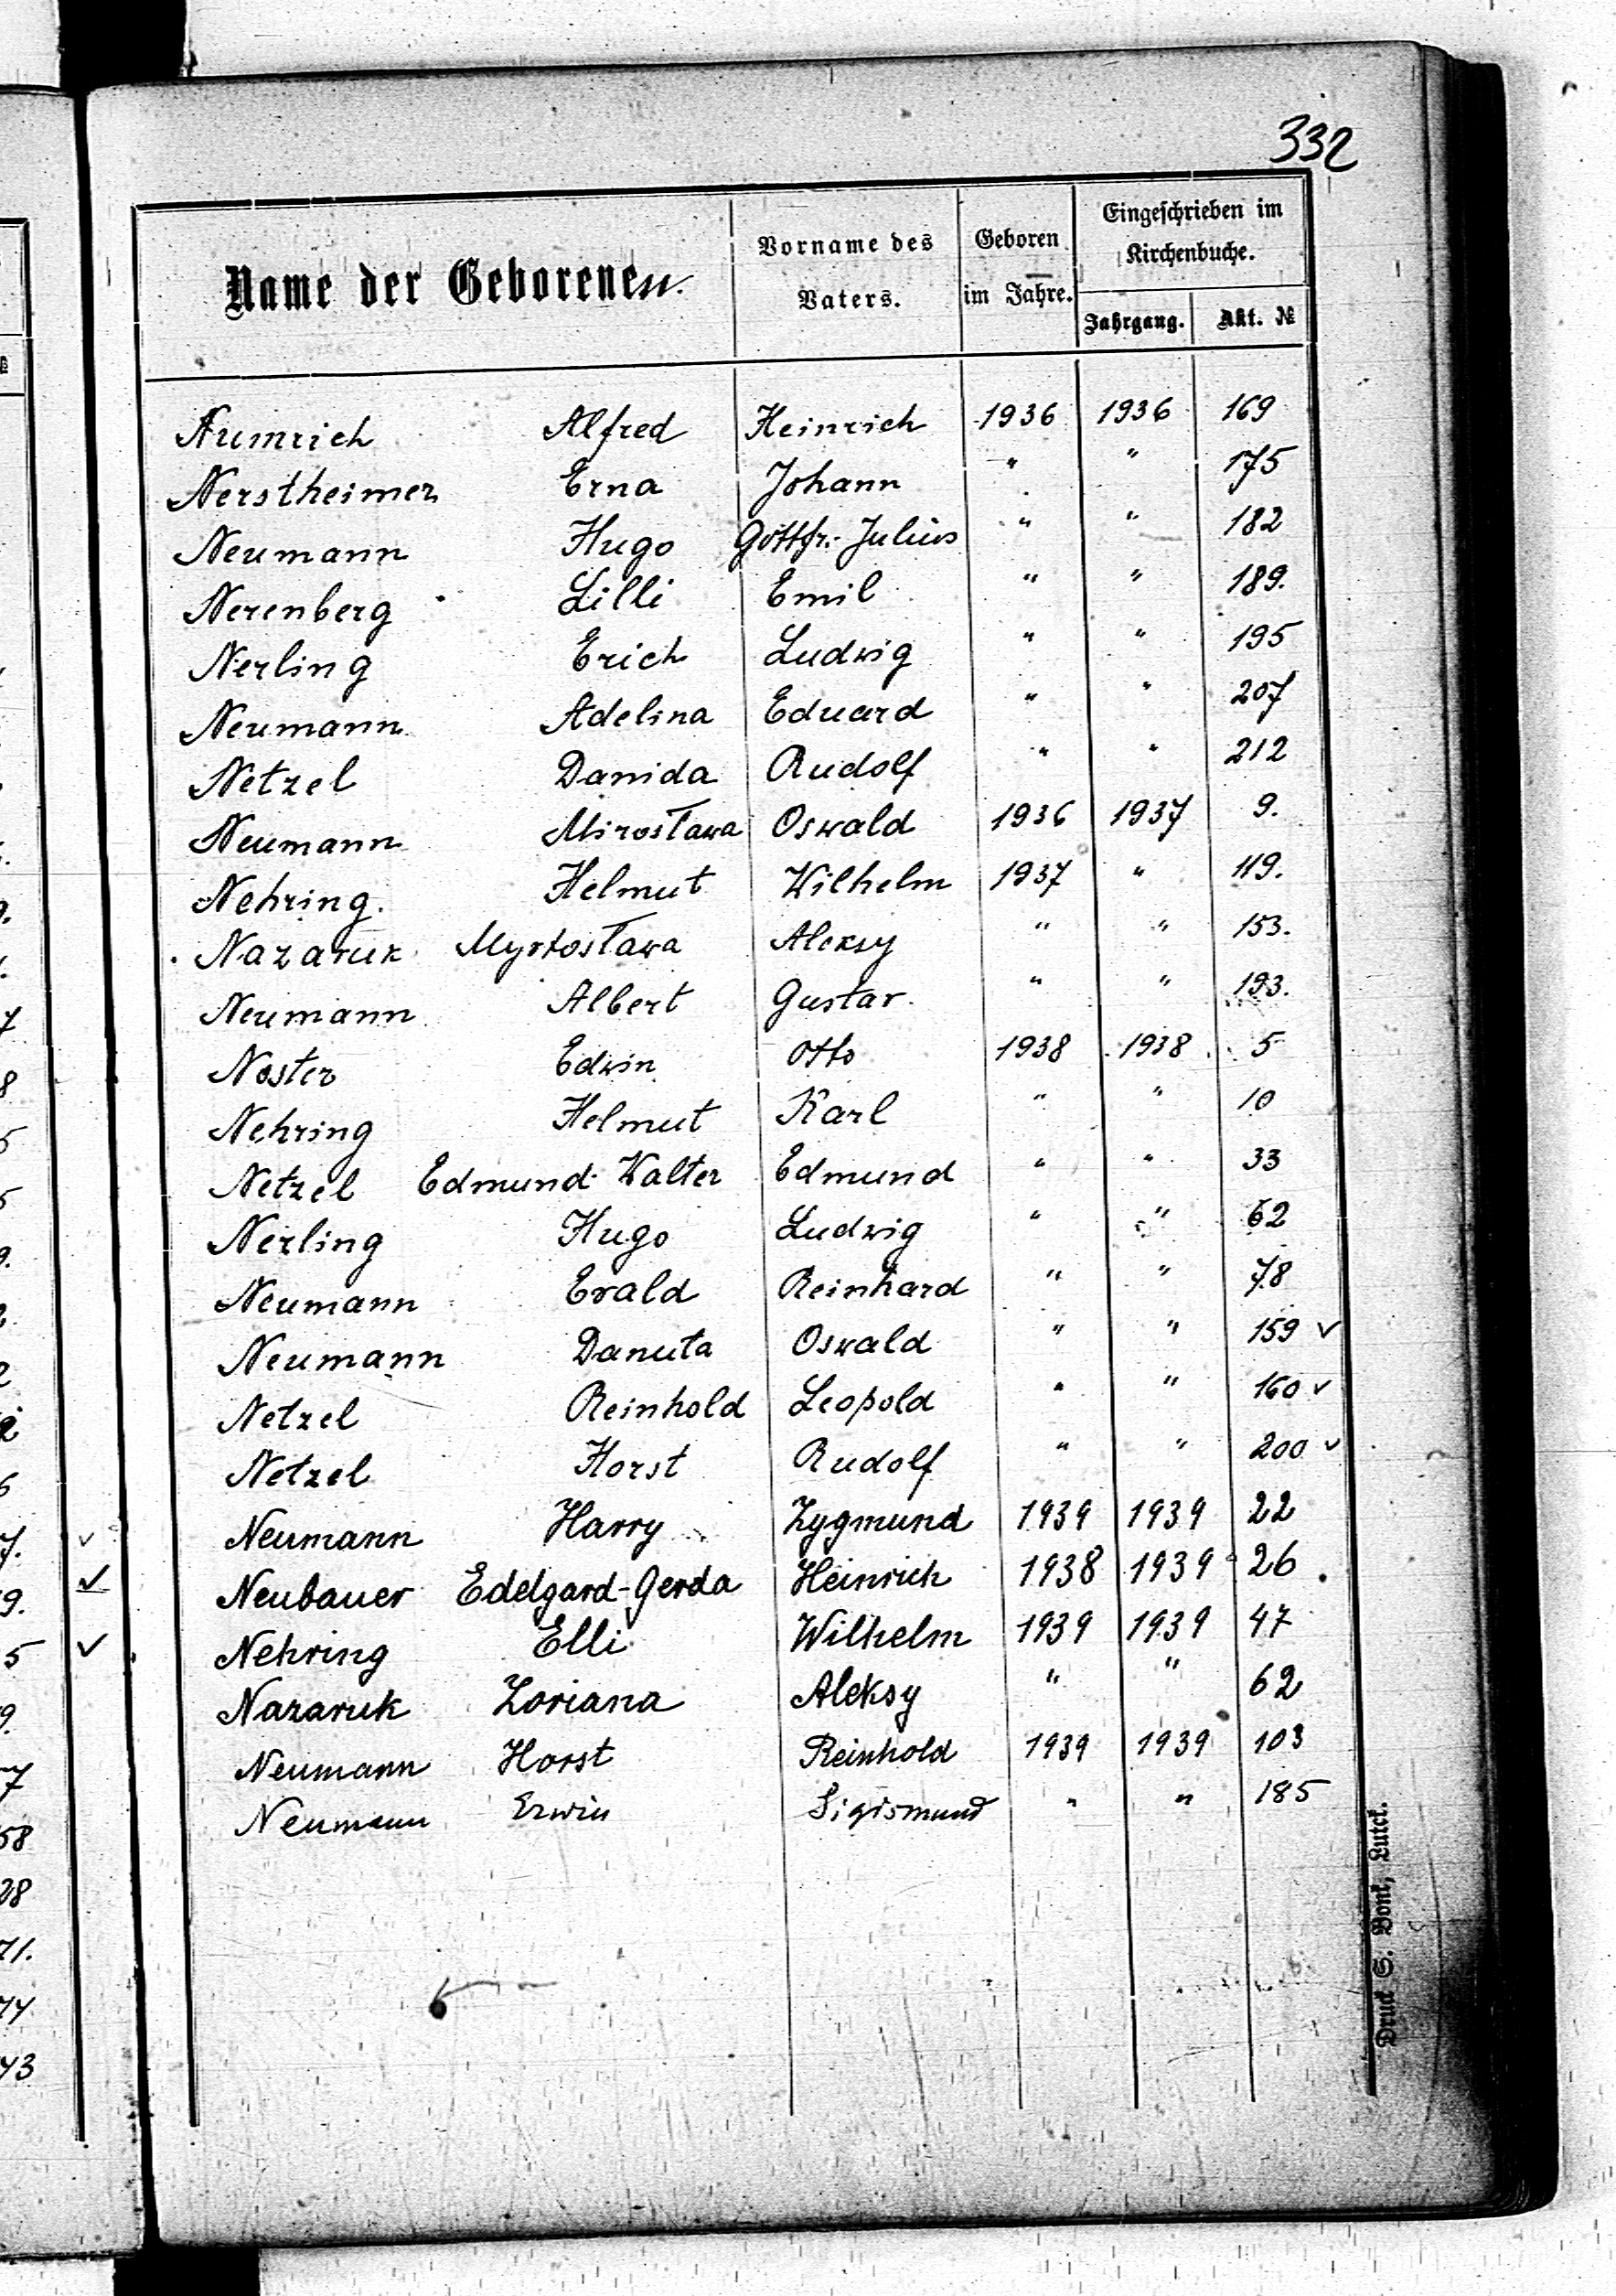 332
Name der Geborenen.
Vorname des Vaters.
Geboren im Jahre.
Eingeschrieben im Kirchenbuche.
Jahrgang.
Akt. №
Numrich Alfred Heinrich 1936 1936 169
Nerstheimer Erna Johann " " 175
Neumann Hugo Gottfr. Julius " " 182
Nerenberg Lilli Emil " " 189.
Nerling Erich Ludwig " " 195
Neumann Adelina Eduard " " 207
Netzel Danida Rudolf " " 212
Neumann Mirosława Oswald 1936 1937 9.
Nehring. Helmut Wilhelm 1937 " 119.
Nazaruk Aleksy " " 153.
Neumann Albert Gustav. " " 193.
Noster Edwin Otto 1938 1938 5
Nehring Helmut Karl " " 10
Netzel Edmund Walter Edmund " " 33
Nerling Hugo Ludwig " " 62
Neumann Evald Reinhard " " 78
Neumann Danuta Oswald " " 159 ✓
Netzel Reinhold Leopold " " 160 ✓
Netzel Horst Rudolf " " 200 ✓
Neumann Harry Zygmund 1939 1939 22
Neubauer Edelgard-Gerda Heinrich 1938 1939 26
Nehring Elli Wilhelm 1939 1939 47
Nazaruk Zoriana Aleksy " " 62
Neumann Horst Reinhold 1939 1939 103
Neumann Erwin Sigismund " " 185
Druck S. Bonk, Lutck.